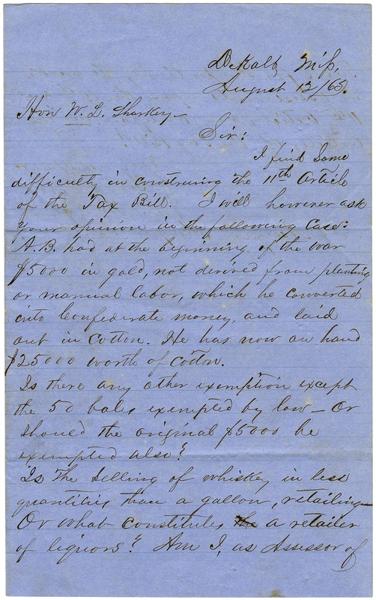 DeKalb, Miss,
August 12/65.
Hon W. L. Sharkey –
Sir:
I find some
difficulty in construing the 11th Article
of the Tax Bill. I will however ask
your opinion in the following case:
A.B. had at the beginning of the war
$5000 in gold, not derived from planting
or manual labor, which he converted
into Confederate money, and laid
out in Cotton. He has now on hand
$25000 worth of Cotton.
Is there any other exemption except
the 50 bales exempted by law – Or
should the original $5000 be
exempted also?
Is the selling of whiskey in less
quantities than a gallon, retailing –
Or what constitutes a retailer
of liquors? Am I, as Assessor of